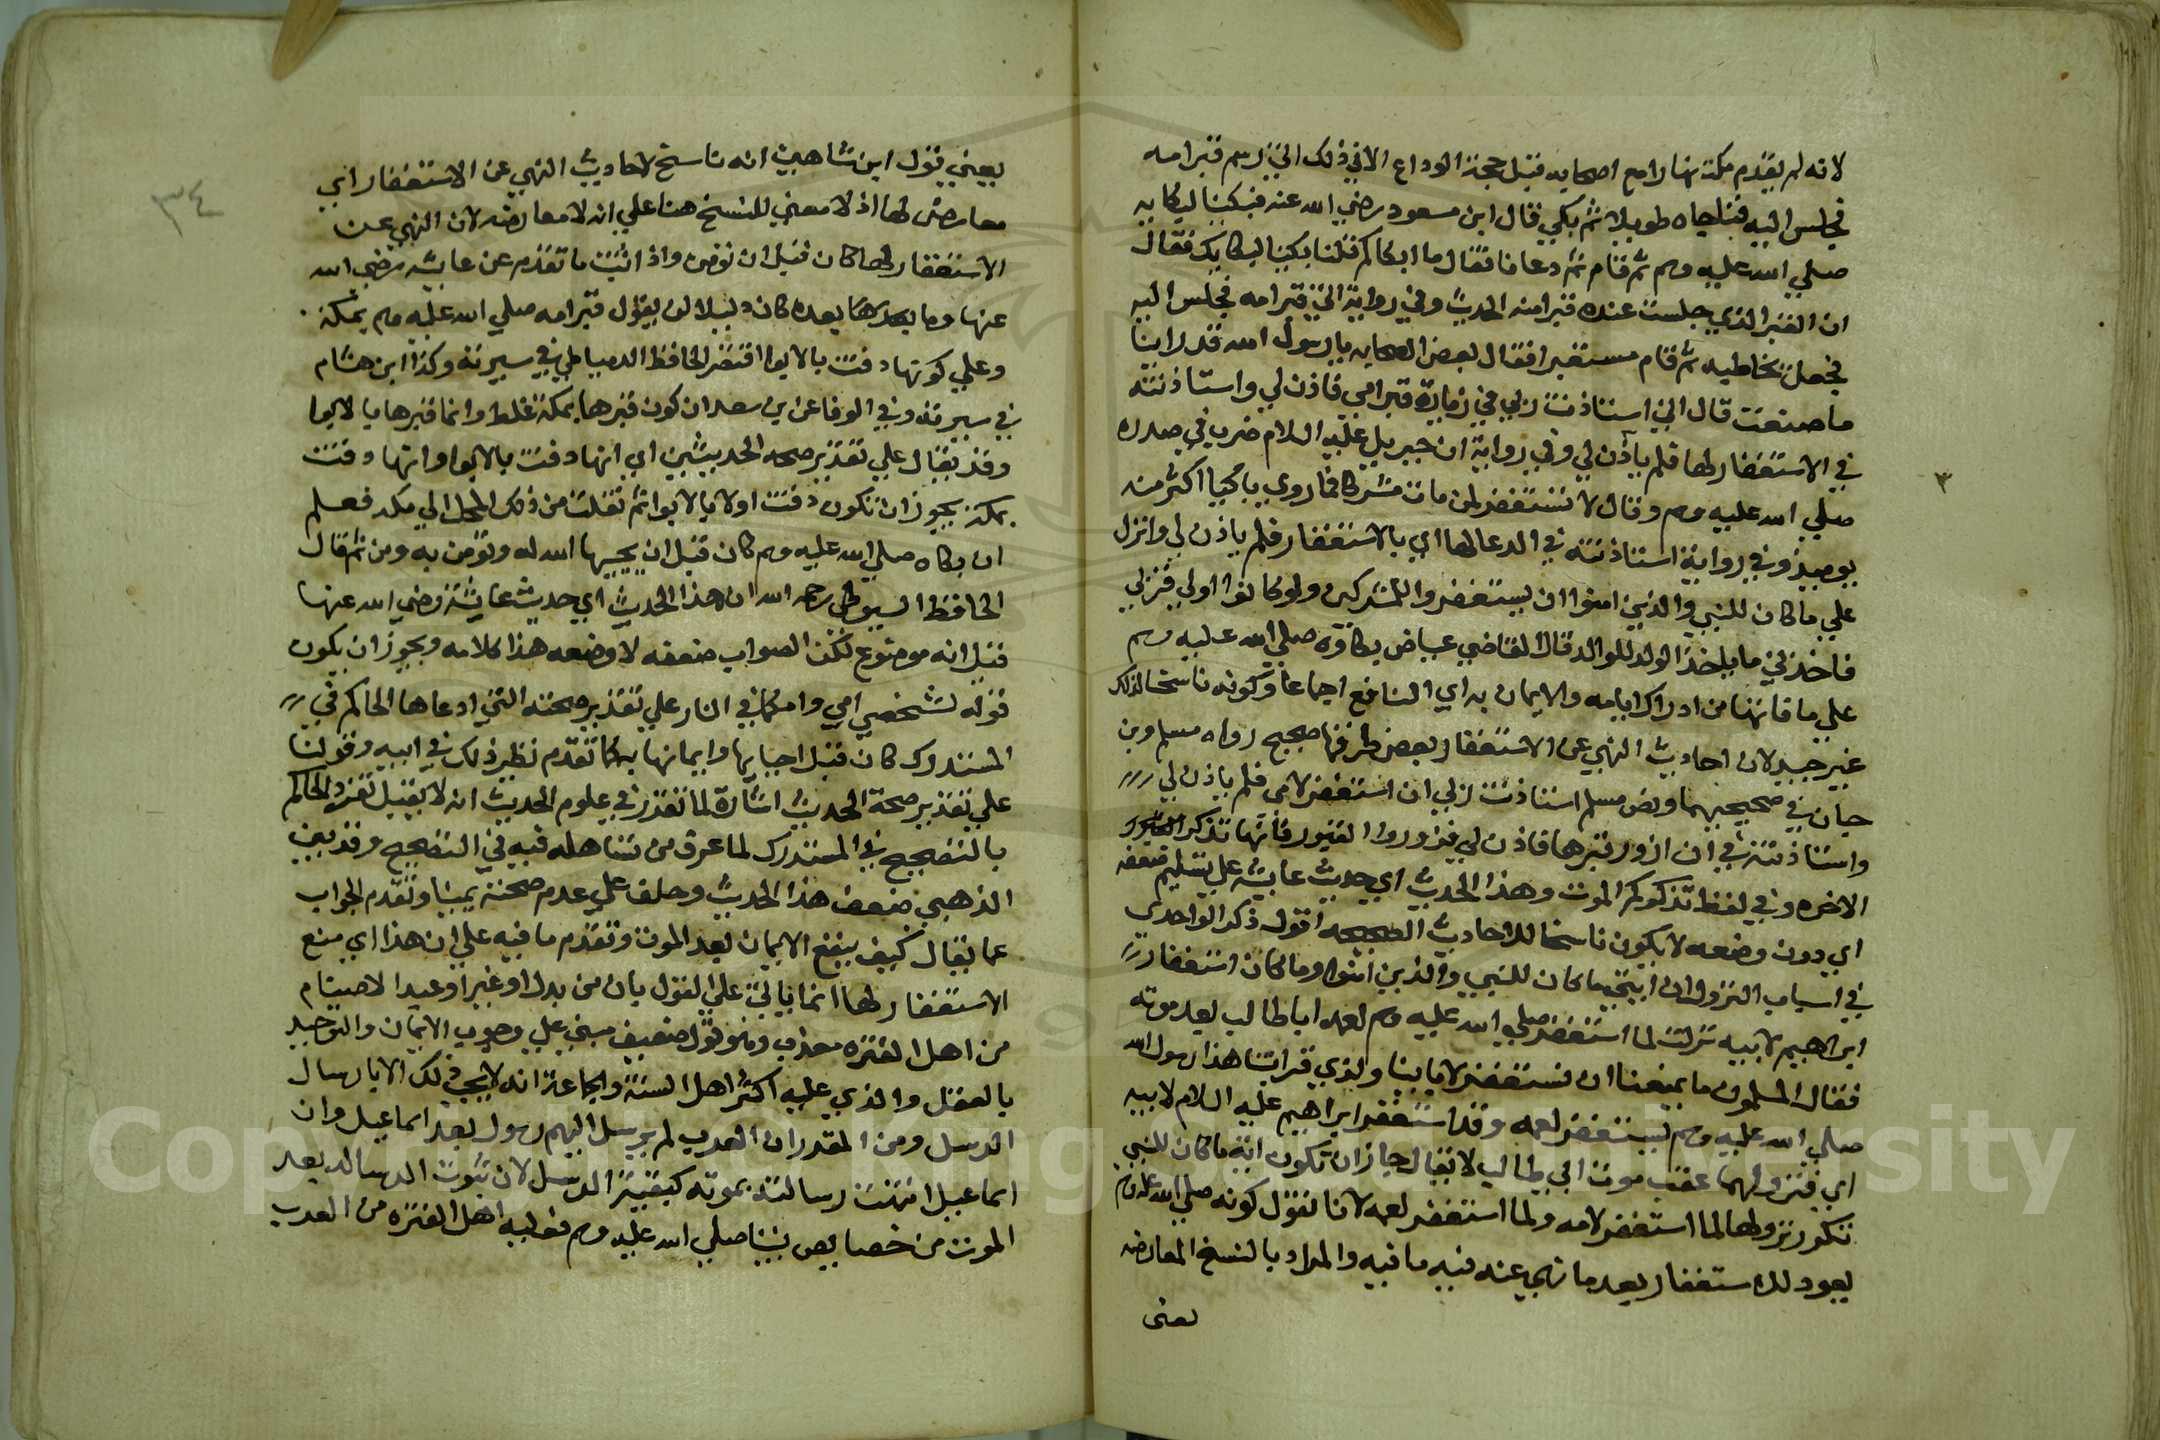 لانه لم يقدم مكة نهارا مع اصحابه قبل حجة الوداع الا في ذلك اتي رسم قبر امه
فجلس اليه فناجاه طويلا ثم بكي قال ابن مسعود رضي الله عنه فبكينا لبكايه
صلي الله عليه وسم ثم قام ثم دعانا فقال ما ابكاكم قلنا بكينا لبكايك فقال
ان القبر الذي جلست عنده قبر امنه الحديث وفي رواية اتي قبر امه فجلس اليه
فجعل يخاطبه ثم قام مستعبرا فقال بعض الصحابه يا رسول الله قد راينا
ما صنعت قال اني استاذنت ربي في زيارة قبر امي فاذن لي واستاذنته
في الاستغفار لها فلم ياذن لي وفي رواية ان جبريل عليه السلام ضرب في صدره
صلي الله عليه وسم وقال لا تستغفر لمن مات مشركا فما روي باكيا اكثر منه
يوميذ وفي رواية استاذنته في الدعا لها اي بالاستغفار فلم ياذن لي وانزل
علي ما كان للنبي والذين امنوا ان يستغفروا للمشركين ولو كانوا اولي قربي
فاخذني ما ياخذ الولد للوالد قال القاضي عياض بكاوه صلي الله عليه وسم
علي ما فاتها من ادراك ايامه والايمان به اي النافع اجماعا وكونه ناسخا لذلك
غير جيد لان احاديث النهي عن الاستغفار بعض طرقها صحيح رواه مسلم وبن
حبان في صحيحيهما ونص مسلم استاذنت ربي ان استغفر لامي فلم ياذن لي
واستاذنته في ان ازور قبرها فاذن لي فزوروا القبور فانها تذكر
الاخره وفي لفظ تذكركم الموت وهذا الحديث اي حديث عايشه علي تسليم ضعفه
اي دون وضعه لا يكون ناسخا للاحاديث الصحيحه اقول ذكر الواحدي
في اسباب النزول ان ايتي ما كان للنبي والذين امنوا وما كان استغفار
ابراهيم لابيه نزلت لما استغفر صلي الله عليه وسم لعمه ابا طالب بعد موته
فقال المسلمون ما يمنعنا ان نستغفر لاباينا ولذي قراباتنا هذا رسول الله
صلي الله عليه وسم يستغفر لعمه وقد استغفر ابراهيم عليه السلام لابيه
اي فنزولهما عقب موت ابي طالب لا يقال جاز ان تكون اية ما كان للنبي
تكرر نزولها لما استغفر لامه ولما استغفر لعمه لانا نقول كونه صلي الله عليه وسم
يعود للاستغفار بعد ما نهي عنه فيه ما فيه والمراد بالنسخ المعارضه
يعني
٣٤
يعني يقول ابن شاهين انه ناسخ لاحاديث النهي عن الاستغفار اني
معارض لها اذ لا معني للنسخ هنا علي انه لا معارضه لان النهي عن
الاستغفار لها كان قبل ان تومن واذا ثبت ما تقدم عن عايشه رضي الله
عنها وما بعدها بعده كان دليلا لمن يقول قبر امه صلي الله عليه وسم بمكة
وعلي كونها دفنت بالابوا اقتصر الحافظ الدمياطي في سيرته وكذا ابن هشام
في سيرته وفي الوفا عن بن سعد ان كون قبرها بمكة غلط وانما قبرها بالابوا
وقد يقال علي تقدير صحه الحديثين اي انها دفنت بالابوا وانها دفنت
بمكة يجوز ان تكون دفنت اولا بالابوا ثم نقلت من ذلك المحل الي مكه فعلم
ان بكاه صلي الله عليه وسم كان قبل ان يحييها الله له وتومن به ومن ثم قال
الحافظ السيوطي رحمه الله ان هذا الحديث اي حديث عايشة رضي الله عنها
قيل انه موضوع لكن الصواب ضعفه لا وضعه هذا كلامه ويجوز ان يكون
قوله لشخص امي وامكما في النار علي تقدير صحته التي ادعاها الحاكم في
المستدرك كان قبل احيايها وايمانها به كما تقدم نظير ذلك في ابيه وقولنا
علي تقدير صحة الحديث اشارة لما تقرر في علوم الحديث انه لا يقبل تفرد الحاكم
بالتصحيح في المستدرك لما عرف من تساهله فيه في التصحيح وقد بين
الذهبي ضعف هذا الحديث وحلف علي عدم صحته يمينا وتقدم الجواب
عما يقال كيف ينفع الايمان بعد الموت وتقدم ما فيه علي ان هذا اي منع
الاستغفار لها انما ياتي علي القول بان من بدل او غير او عبد الاصنام
من اهل الفتره معذب وهو قول ضعيف مبني علي وجوب الايمان والتوحيد
بالعقل والذي عليه اكثر اهل السنة والجماعة انه لا يجب ذلك الا بارسال
الرسل ومن المقرر ان العرب لم يرسل اليهم رسول بعد اسماعيل وان
اسماعيل انتهت رسالته بموته كبقية الرسل لان ثبوت الرساله بعد
الموت من خصايص نبينا صلي الله عليه وسم فعليه اهل الفتره من العرب